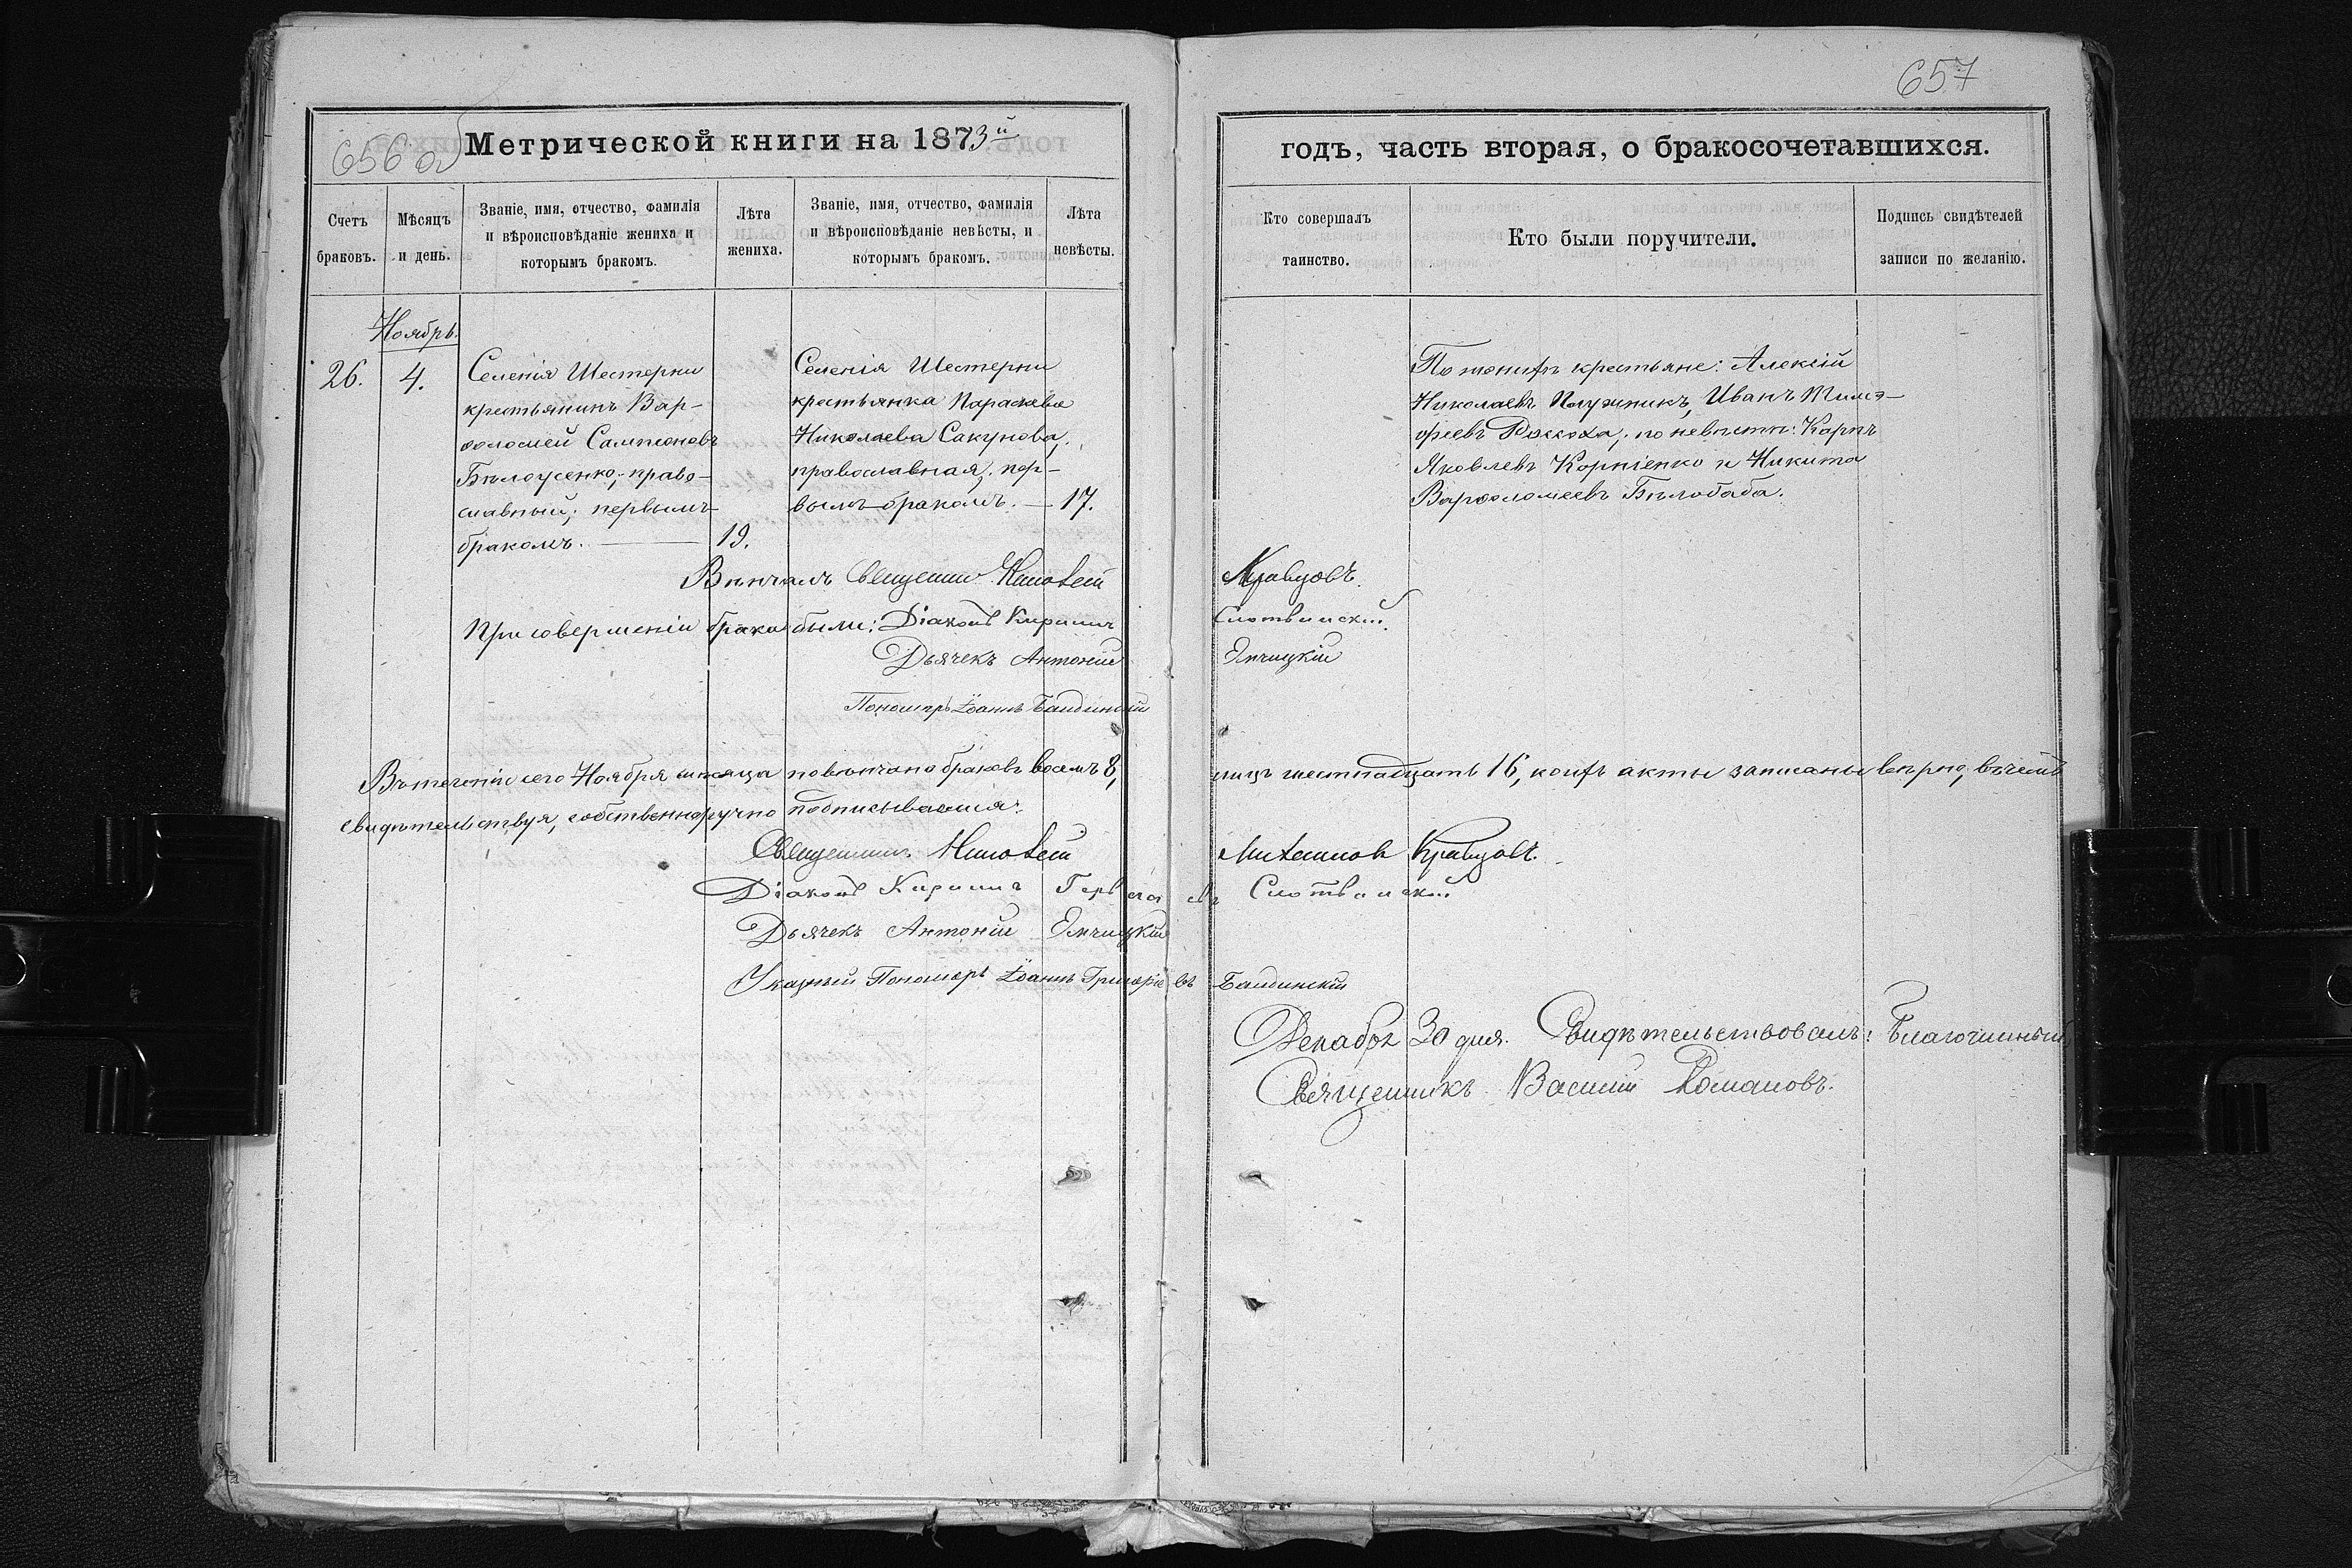 657
656 об
Метрической книги на 1873й
годъ, часть вторая, о бракосочетавшихся.
Счетъ браковъ.
Мѣсяцъ и день.
Званіе, имя, отчество, фамилія и вѣроисповѣданіе жениха и которымъ бракомъ.
Лѣта жениха.
Званіе, имя, отчество, фамилія и вѣроисповѣданіе невѣсты, и которымъ бракомъ.
Лѣта невѣсты.
Кто совершалъ таинство.
Кто были поручители.
Подпись свидѣтелей записи по желанію.
Ноябрь.
26.
4.
Селенія Шестерни
крестьянинъ Вар-
ѳоломей Сампсоновъ
Бѣлоусенко, право-
славный; первымъ
бракомъ. — 19.
Селенія Шестерни
крестьянка Параскева
Николаева Сакунова,
православная; пер-
вымъ бракомъ. — 17.
По женихѣ крестьяне: Алексій
Николаевъ Плужникъ, Иванъ Тимо-
феевъ; по невѣстѣ: Карпъ
Яковлевъ Корніенко и Никита
Варѳоломеевъ Бѣлобаба.
Вѣнчалъ Священникъ Кравцовъ.
При совершеніи брака были: Діаконъ Кириллъ Слотвинскій.
Дьячекъ Антоній
Пономарь Іоаннъ
Въ теченіи сего Ноября мѣсяца повѣнчано браковъ восемь 8, лицъ шестнадцать 16, коихъ акты записаны вѣрно, въ чемъ
свидѣтельствуя, собственноручно подписываемся:
Священникъ Кравцовъ.
Діаконъ Кириллъ Слотвинскій
Дьячекъ Антоній
Указный Пономарь Іоаннъ Григоріевъ
Декабря 30 дня. Свидѣтельствовалъ: Благочинный
Священникъ Василій Романовъ.